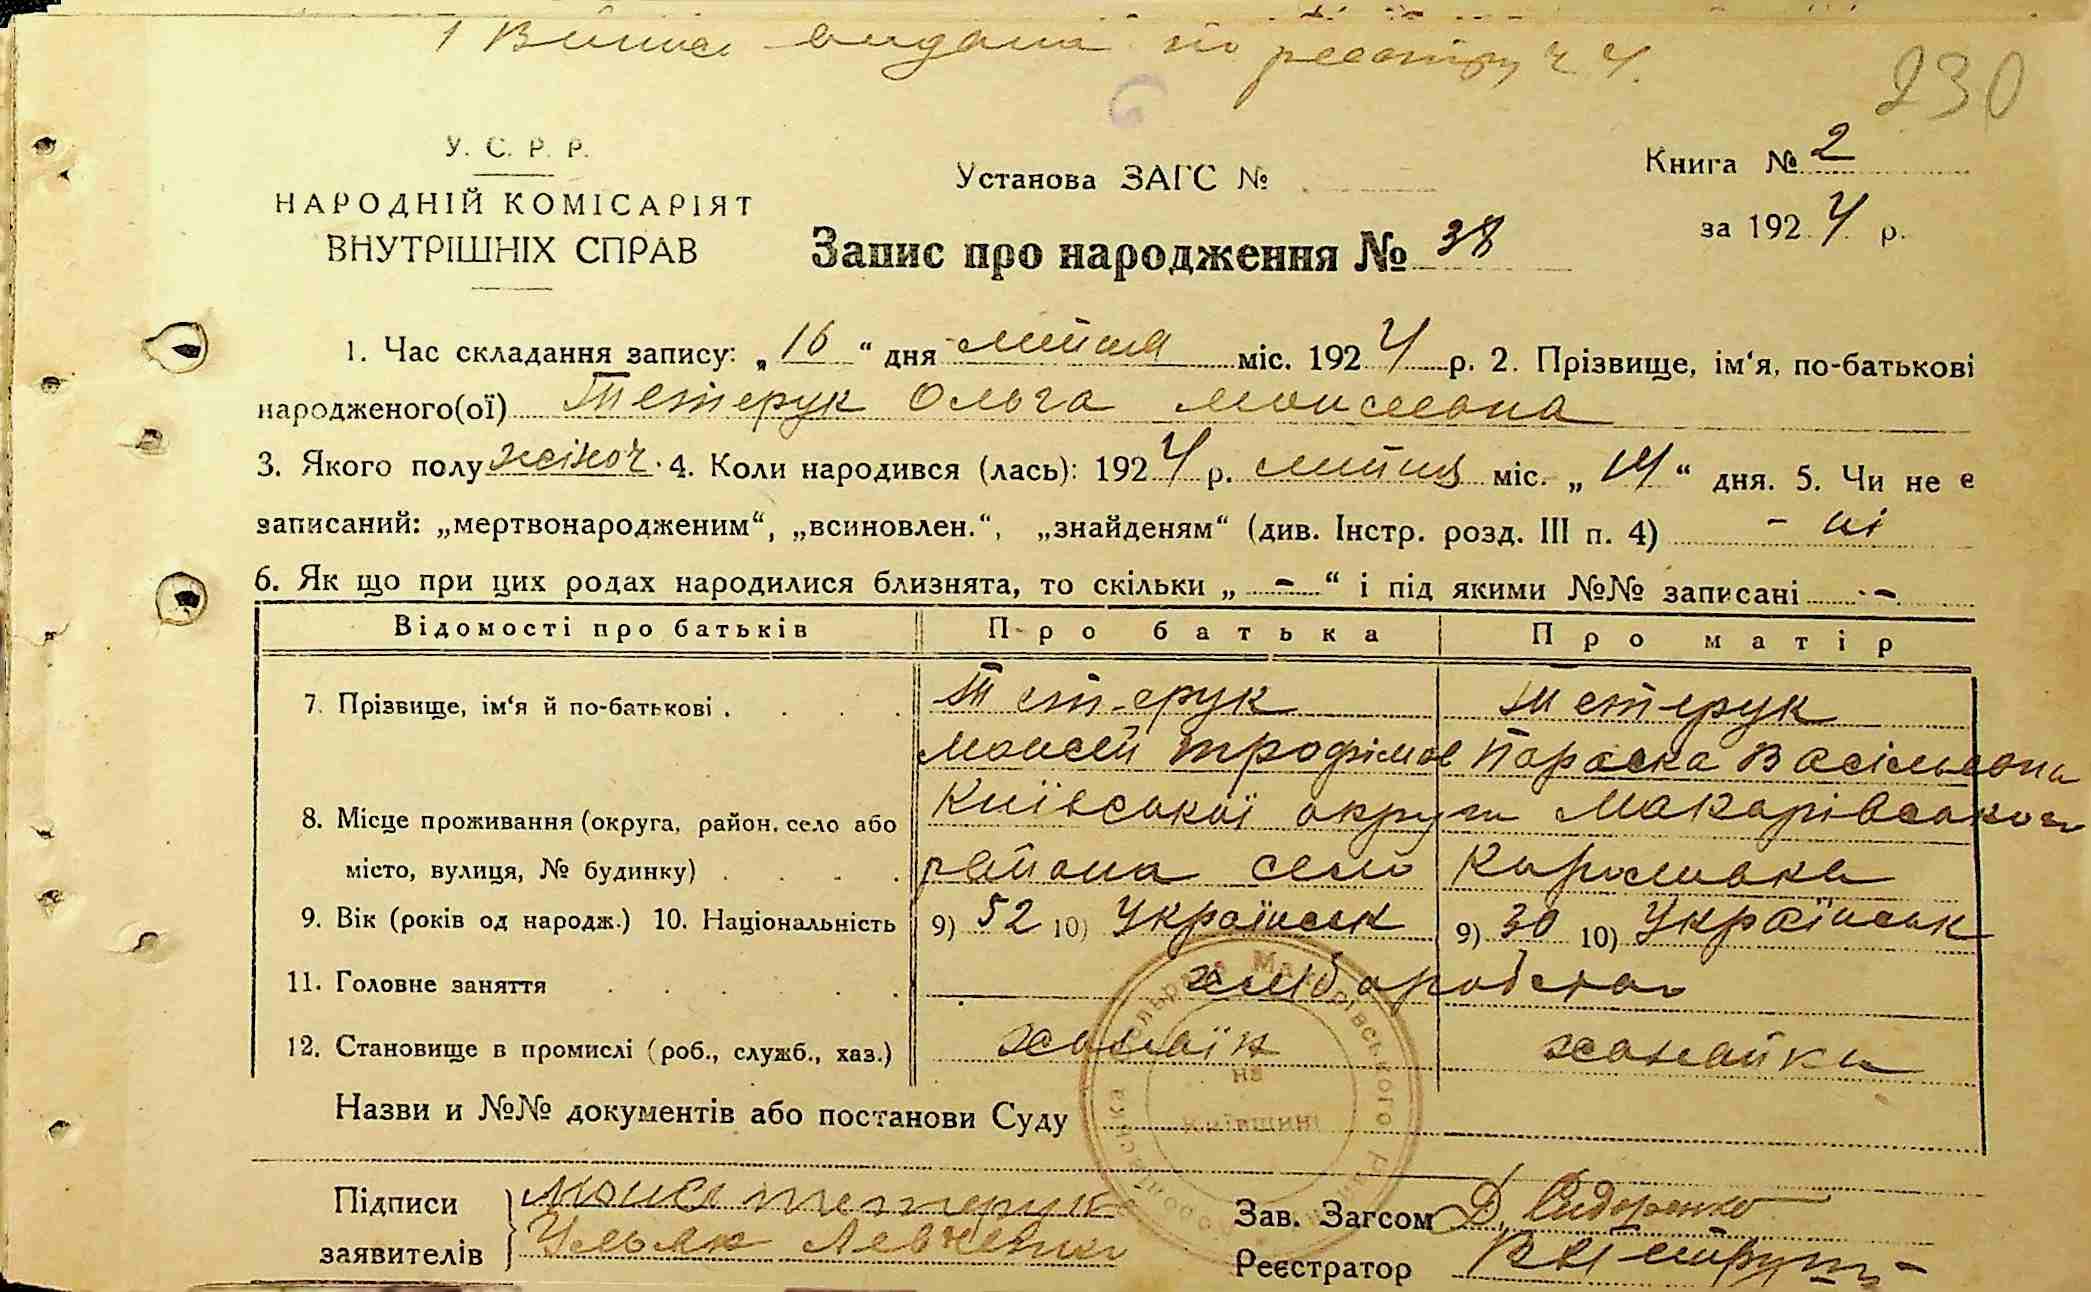 1 Випис видана по реєстру ч. 4.
230
У. С. Р. Р.
НАРОДНІЙ КОМІСАРІЯТ
ВНУТРІШНІХ СПРАВ
Установа ЗАГС №
Книга № 2
за 1924 р.
Запис про народження № 38
1. Час складання запису: „16“ дня липня міс. 1924 р. 2. Прізвище, ім‘я, по-батькові
народженого(ої) Тетерук Ольга Моисеевна
3. Якого полу жіноч. 4. Коли народився (лась): 1924 р. липця міс. „14“ дня. 5. Чи не є
записаний: „мертвонародженим“, „всиновлен.“, „знайденям“ (див. Інстр. розд. III п. 4) - ні
6. Як що при цих родах народилися близнята, то скільки „-“ і під якими №№ записані -
Відомості про батьків Про батька Про матір
7. Прізвище, ім‘я й по-батькові . Тетерук Тетерук
Моисей Трофімов Параска Васільевна
8. Місце проживання (округа, район, село або Київської округи Макарівського
місто, вулиця, № будинку) района село Королівка
9. Вік (років од народж.) 10. Національність 9) 52 10) Українськ 9) 30 10) Українськ
11. Головне заняття хліборобство
12. Становище в промислі (роб., служб., хаз.) хазаїн хазайка
Назви и №№ документів або постанови Суду
на
Київщині
Підписи Тетерук
заявителів Ульян Левченко
Зав. Загсом Д. Сидоренко
Реєстратор